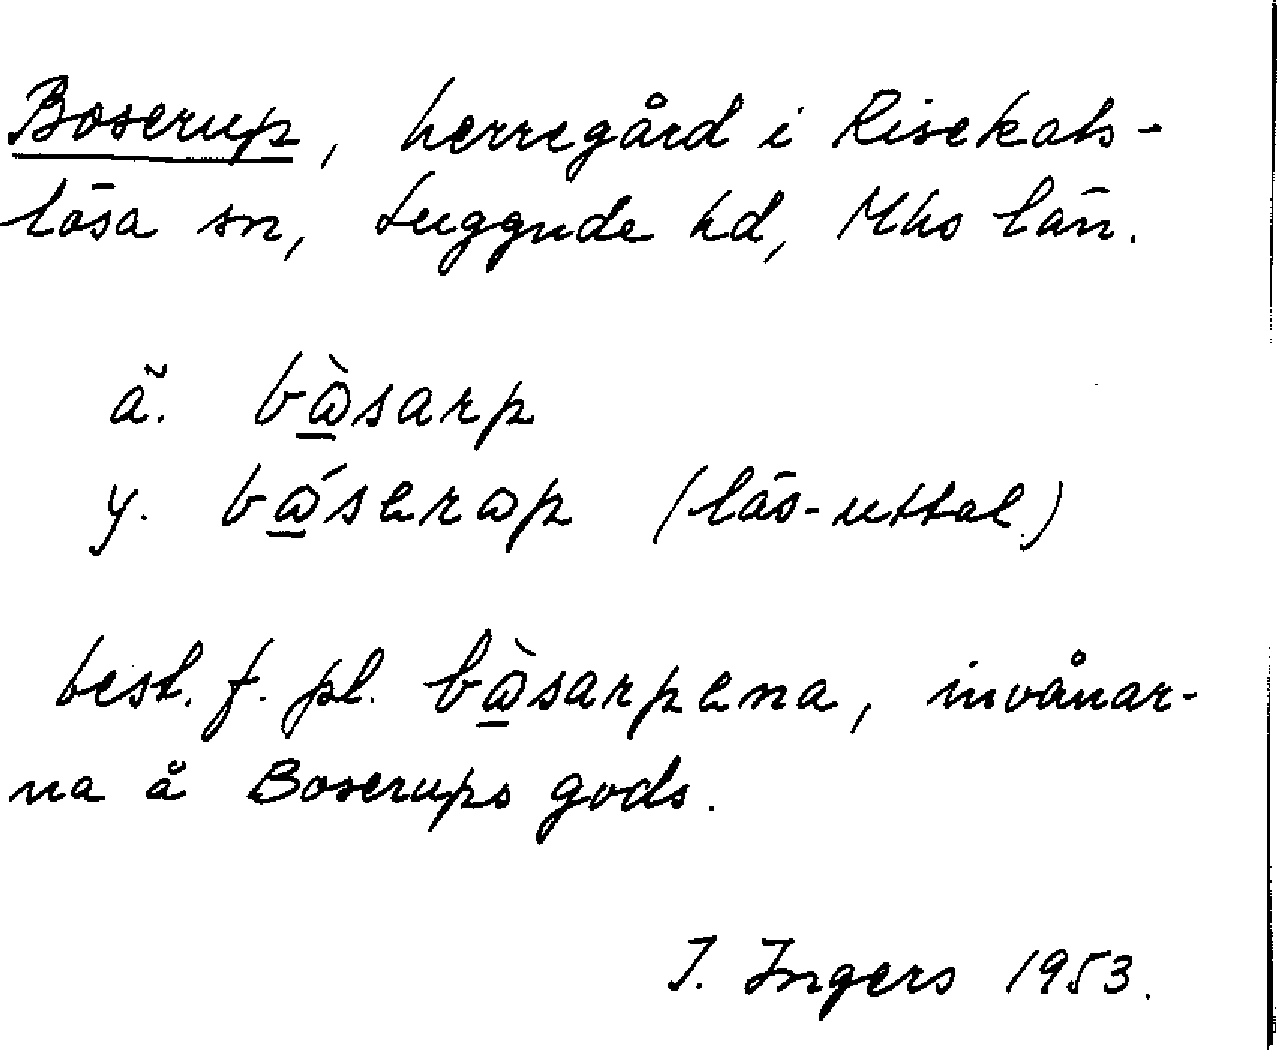 Boserup, herregård i Risekats-
lösa sn, Luggude hd, Mhs län.
ä. bὼ̲sarp
y. bώ̲serωp (läs-uttal)
best. f. pl. bὼ̲sarpena, invånar-
na å Boserups gods.
I. Ingers 1953.